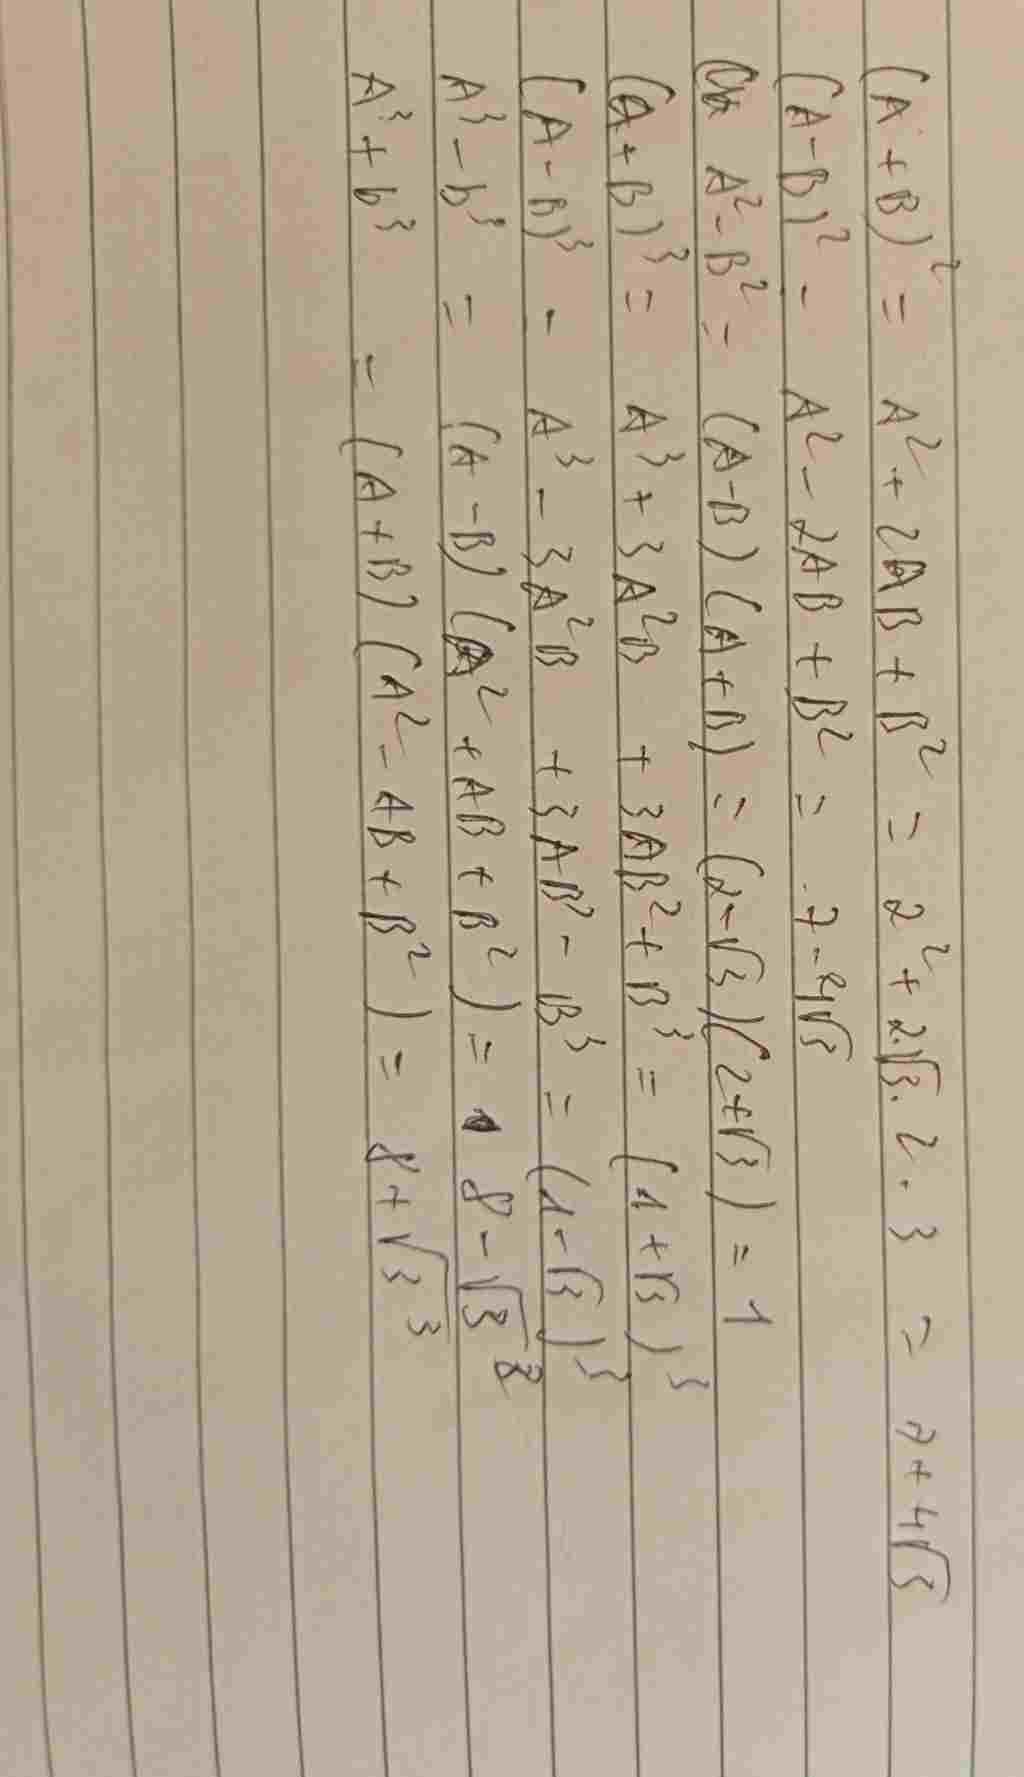 (A+B)² = A² + 2AB + B² = 2² + 2.√3.2.3 = 7+4√3
(A-B)² - A² - 2AB + B² = 7-4√3
A² - B² = (A-B)(A+B) = (2-√3)(2+√3) = 1
(A+B)³ = A³ + 3A²B + 3AB² + B³ = (1+√3)³
(A-B)³ - A³ - 3A²B + 3AB² - B³ = (1-√3)³
A³ - b³ = (A-B)(A² + AB + B²) = 8 - √3
A³ + b³ = (A+B)(A² - AB + B²) = 8 + √3³